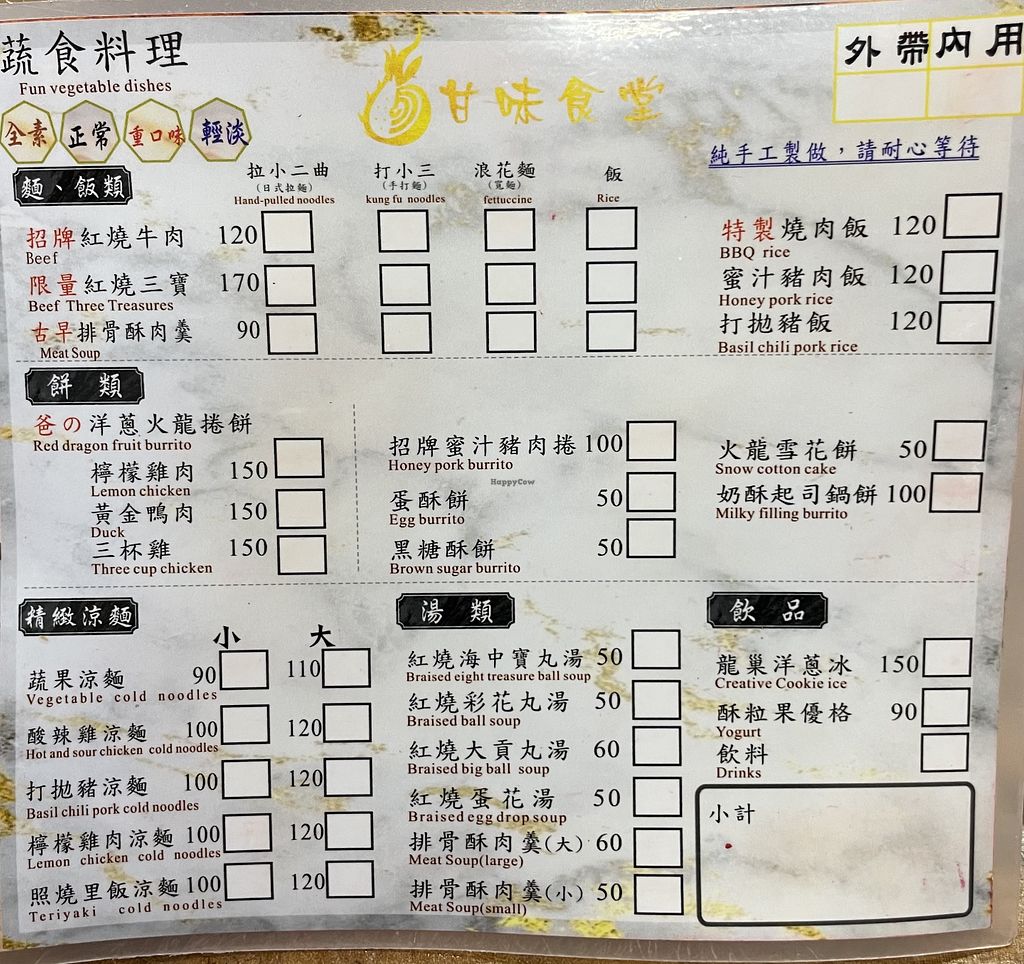 蔬食料理
Fun vegetable dishes
甘味食堂
外帶 內用
全素 正常 重口味 輕淡
純手工製做，請耐心等待
麵、飯類
拉小二曲 打小三 浪花麵 飯
(日式拉麵) (手打麵) (寬麵)
Hand-pulled noodles kung fu noodles fettuccine Rice
招牌紅燒牛肉 120
Beef
限量紅燒三寶 170
Beef Three Treasures
古早排骨酥肉羹 90
Meat Soup
特製燒肉飯 120
BBQ rice
蜜汁豬肉飯 120
Honey pork rice
打拋豬飯 120
Basil chili pork rice
餅類
爸の洋蔥火龍捲餅
Red dragon fruit burrito
檸檬雞肉 150
Lemon chicken
黃金鴨肉 150
Duck
三杯雞 150
Three cup chicken
招牌蜜汁豬肉捲 100
Honey pork burrito
HappyCow
蛋酥餅 50
Egg burrito
黑糖酥餅 50
Brown sugar burrito
火龍雪花餅 50
Snow cotton cake
奶酥起司鍋餅 100
Milky filling burrito
精緻涼麵
小 大
蔬果涼麵 90 110
Vegetable cold noodles
酸辣雞涼麵 100 120
Hot and sour chicken cold noodles
打拋豬涼麵 100 120
Basil chili pork cold noodles
檸檬雞肉涼麵 100 120
Lemon chicken cold noodles
照燒里飯涼麵 100 120
Teriyaki cold noodles
湯類
紅燒海中寶丸湯 50
Braised eight treasure ball soup
紅燒彩花丸湯 50
Braised ball soup
紅燒大貢丸湯 60
Braised big ball soup
紅燒蛋花湯 50
Braised egg drop soup
排骨酥肉羹(大) 60
Meat Soup(large)
排骨酥肉羹(小) 50
Meat Soup(small)
飲品
龍巢洋蔥冰 150
Creative Cookie ice
酥粒果優格 90
Yogurt
飲料
Drinks
小計